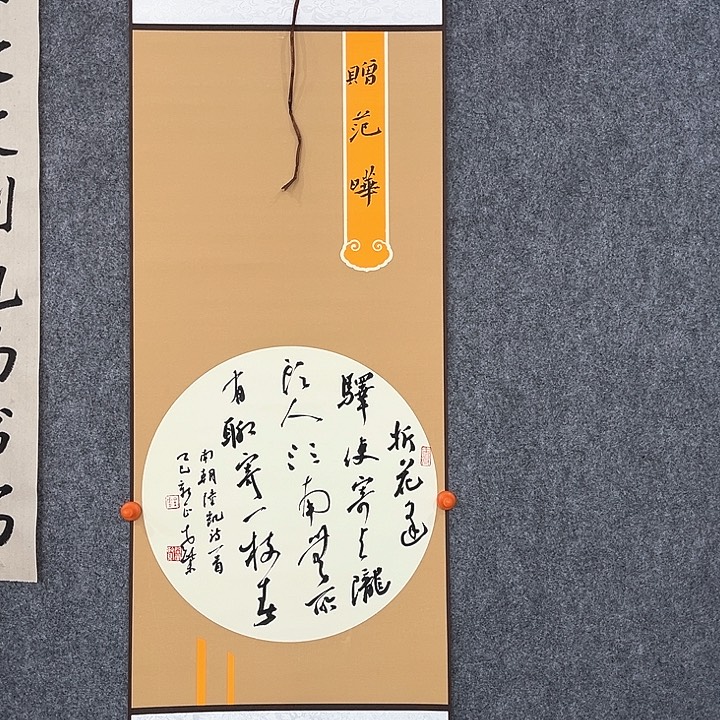 贈范曄
折花逢
驛使寄与隴
頭人江南無所
有聊寄一枝春
南朝陸凱詩一首
乙巳新正